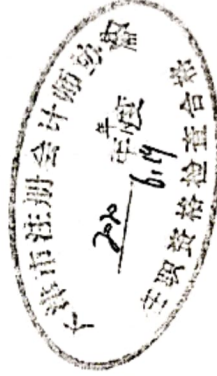 市注册会计师协会
2020年度
6.19
任职资格检查合格